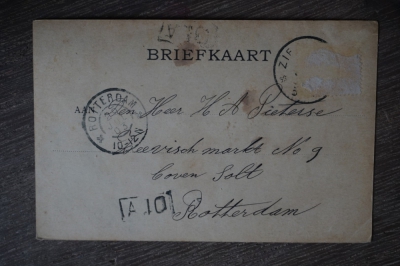 [A 10]
BRIEFKAART
ZIE
Aan
Den Heer H A Pieterse
ROTTERDAM
10-12V
Zeevischmarkt No 9
Boven Solt
Rotterdam
[A 10]